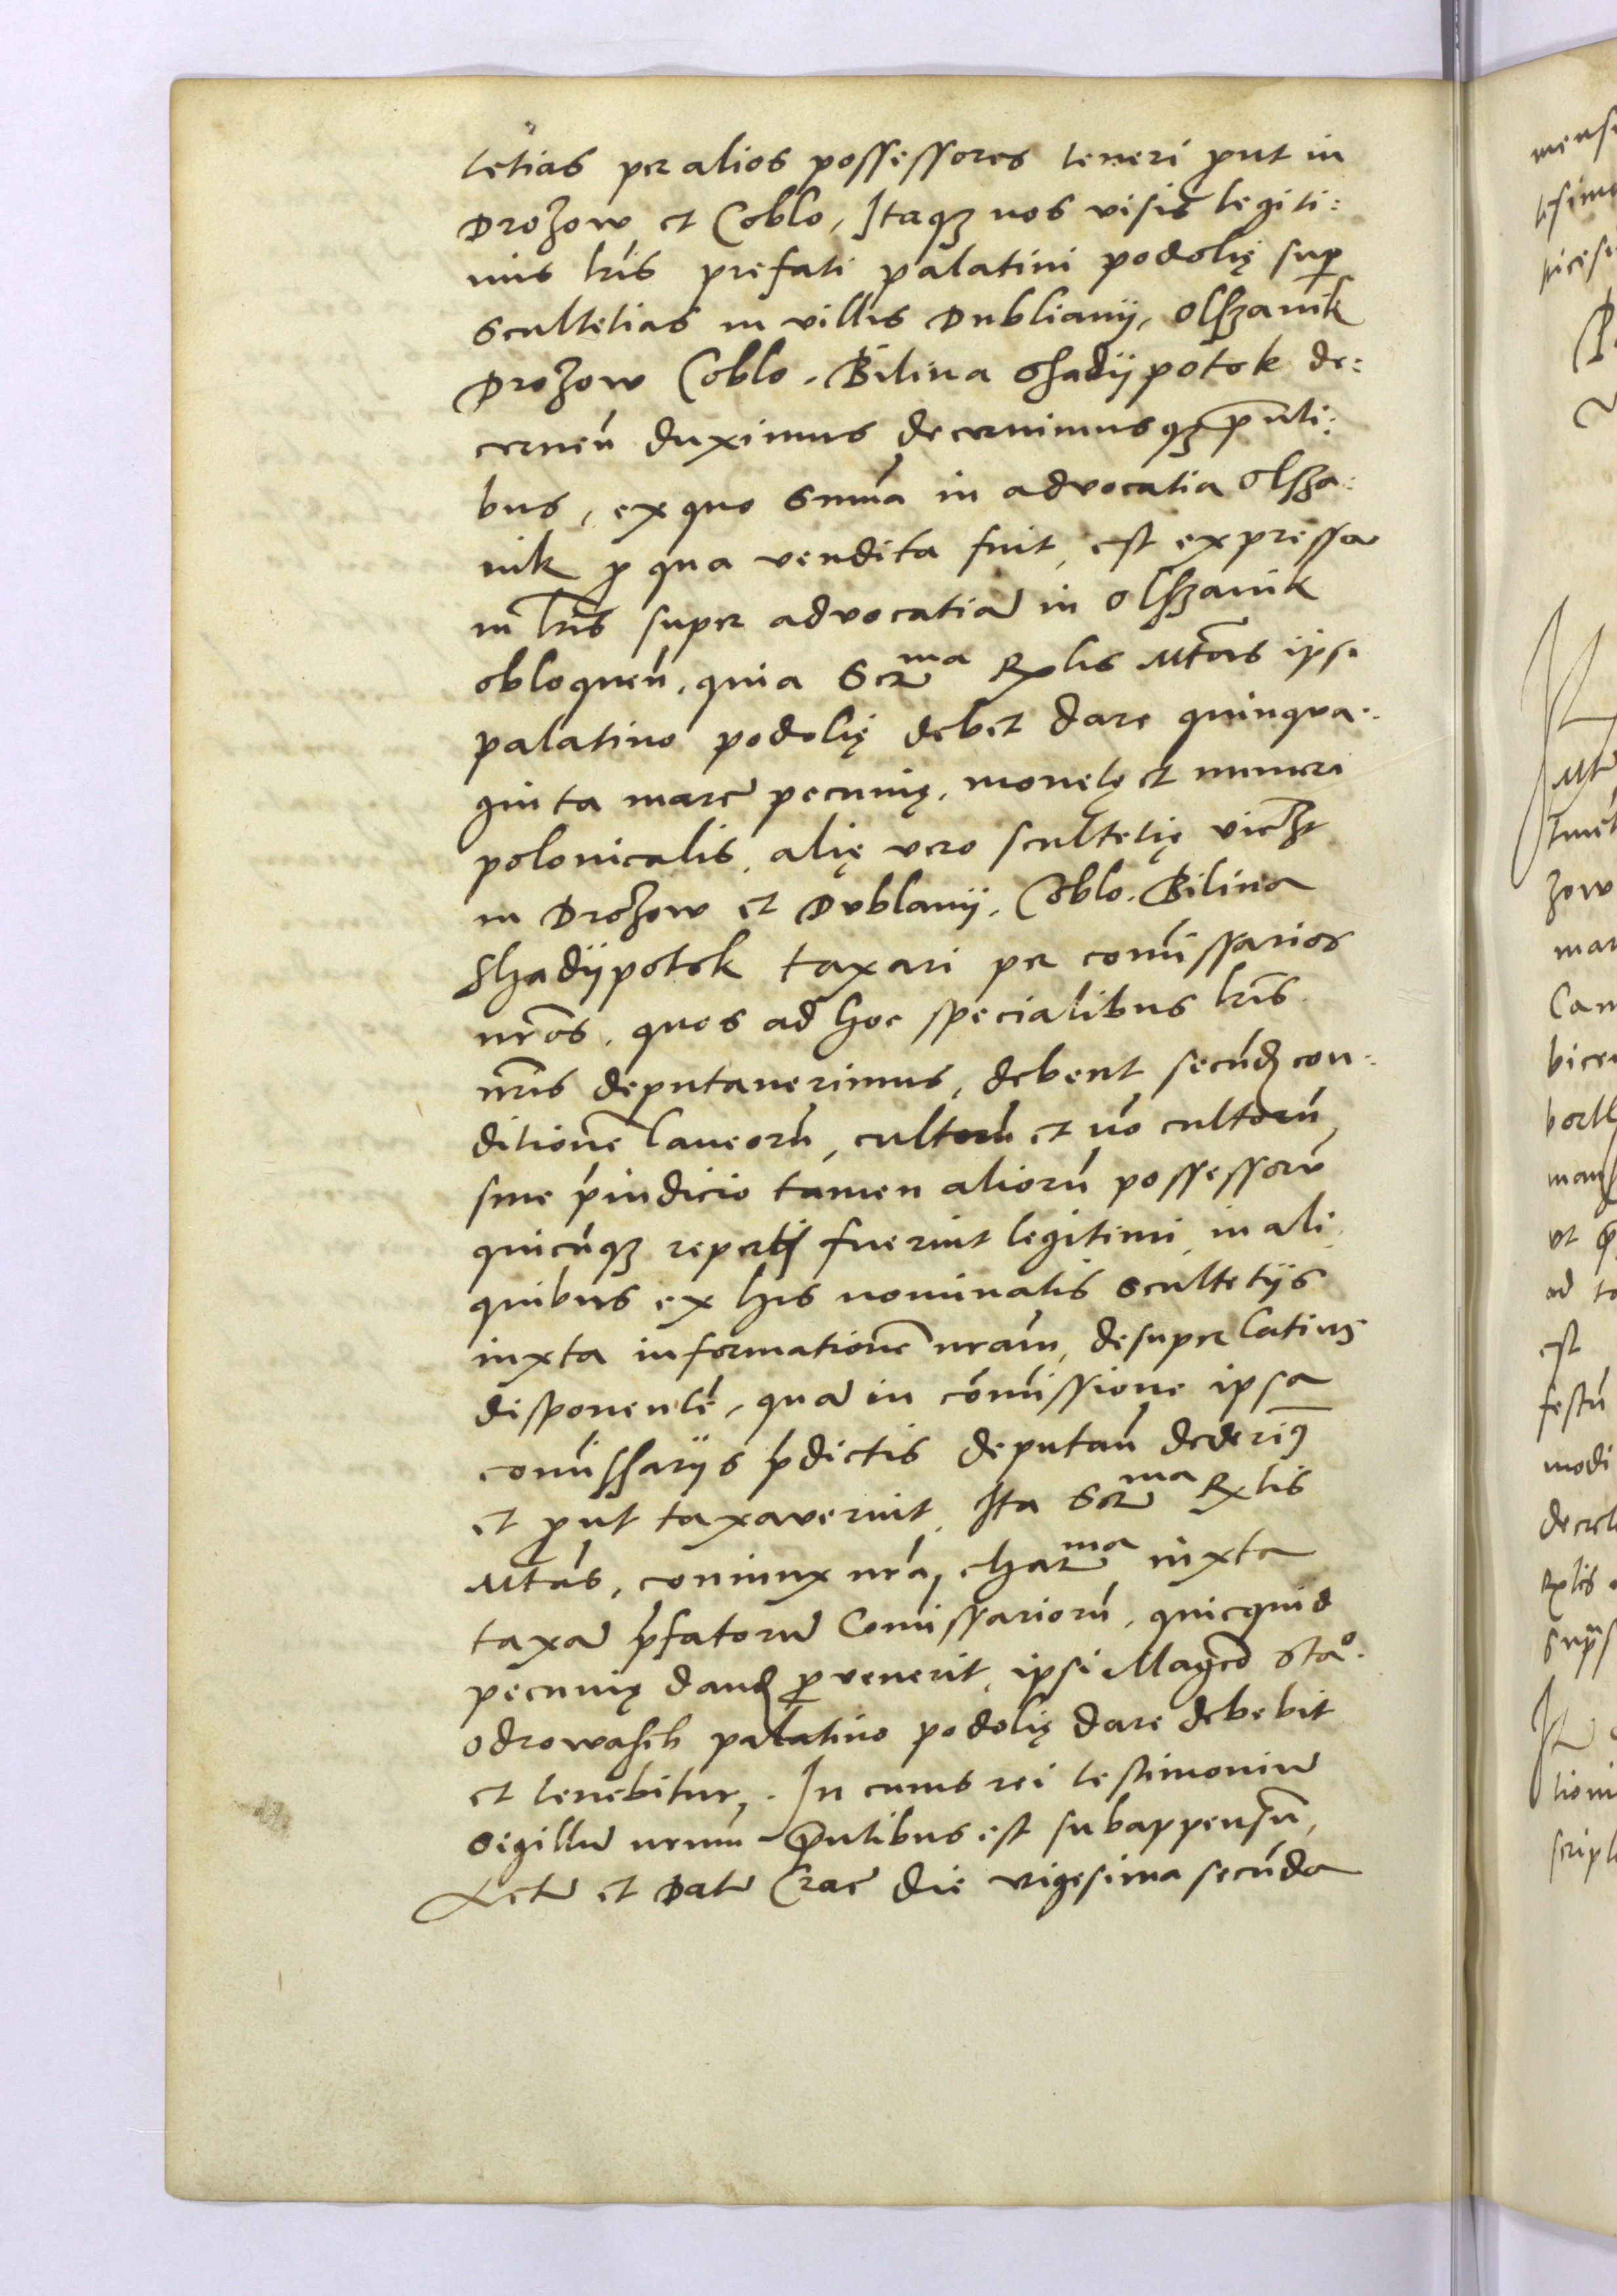 tetias per alios possessores teneri put in
Drozow et Coblo, Itaqz nos visis legiti:
mis lris prefati palatini podolię sup
scultetias in villis Dublianij, Olszanik
Drozow Coblo. Bilina Ghadijpotok de:
cernen̄ duximus decernimusqz pn̄ti:
bus, ex quo sum̄a in advocatia Olsza:
nik p qua vendita fuit, est expressa
in lris super advocatiā in Olszanik
obloquen̄, quia Ser^ma Rglis Mtas ipsi
palatino podolię debet dare quinqua:
ginta marc̄ pecunię, monetę et numeri
polonicalis, alię vero scultetię vidz
in Drozow et Dublanij, Coblo. Bilina
Ghadijpotok taxari per com̄issarios
nr̄os, quos ad hoc specialibus lris
nr̄is deputaverimus, debent secūd con:
ditionē laneorū, cultorū et nō cultorū,
sine p̄iudicio tamen aliorū possessorū
quicūqz repertj fuerint legitimi, in ali
quibus ex his nominatis scultetijs
iuxta informationē nr̄am, desuper latius
disponentē, quā in cōmissione ipsa
com̄issarijs p̄dictis deputan̄ dederim9
et put taxaverint, Ita Ser^ma Rglis
Mtas, coniunx nr̄a, char^ma iuxta
taxā p̄fatorū Com̄issariorū, quicquid
pecunię dand pvenerit, ipsi Magco Sta°.
odrowasch palatino podolię dare debebit
et tenebitur,. In cuius rei testimoniū
Sigillū nr̄um pn̄tibus est subappensū,
Actū et Datū Crac̄ die vigesima secūda